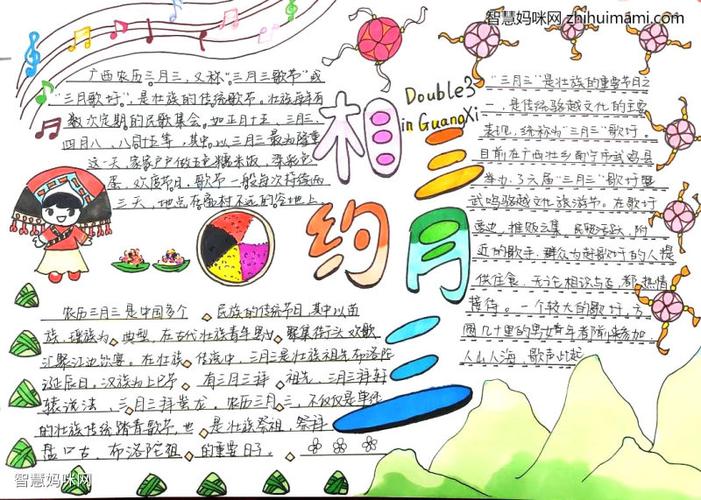 智慧妈咪网 zhihuimami.com
相约
三月三
Double3
in GuangXi
广西农历三月三,又称"三月三歌节"或
"三月歌圩",是壮族的传统歌节。壮族每年有
数次定期的民歌集会。如正月十五、三月三、
四月八、八月十五等,其中以三月三最为隆重
这一天,家家户户做五色糯米饭,染彩色
蛋,欢度节日,歌节一般每次持续两
三天,地点在离村不远的空地上
"三月三"是壮族的重要节日之
一,是传统骆越文化的主要
表现,统称为"三月三"歌圩,
目前在广西壮乡南宁市武鸣县
举办了六届"三月三"歌圩暨
武鸣骆越文化旅游节。在歌圩
旁边,摊贩云集,民贸活跃,附
近的群众为赶歌圩的人提
供住食,无论相识与否,都热情
接待。一个较大的歌圩,方
圆几十里的男女青年都前来参加
人山人海,歌声此起
农历三月三是中国多个 民族的传统节日,其中以苗
族,瑶族为 典型,在古代壮族青年男女 聚集街头欢歌
汇聚江边饮宴。在壮族 传说中,三月三是壮族祖先布洛陀
诞辰日,汉族为上巳节 有三月三拜 祖先,三月三拜轩
辕说法、三月三拜蚩尤,农历三月三,不仅仅是单纯
的壮族传统踏青歌节,也 是壮族祭祖,祭拜
盘古、布洛陀祖 的重要日子。
智慧妈咪网